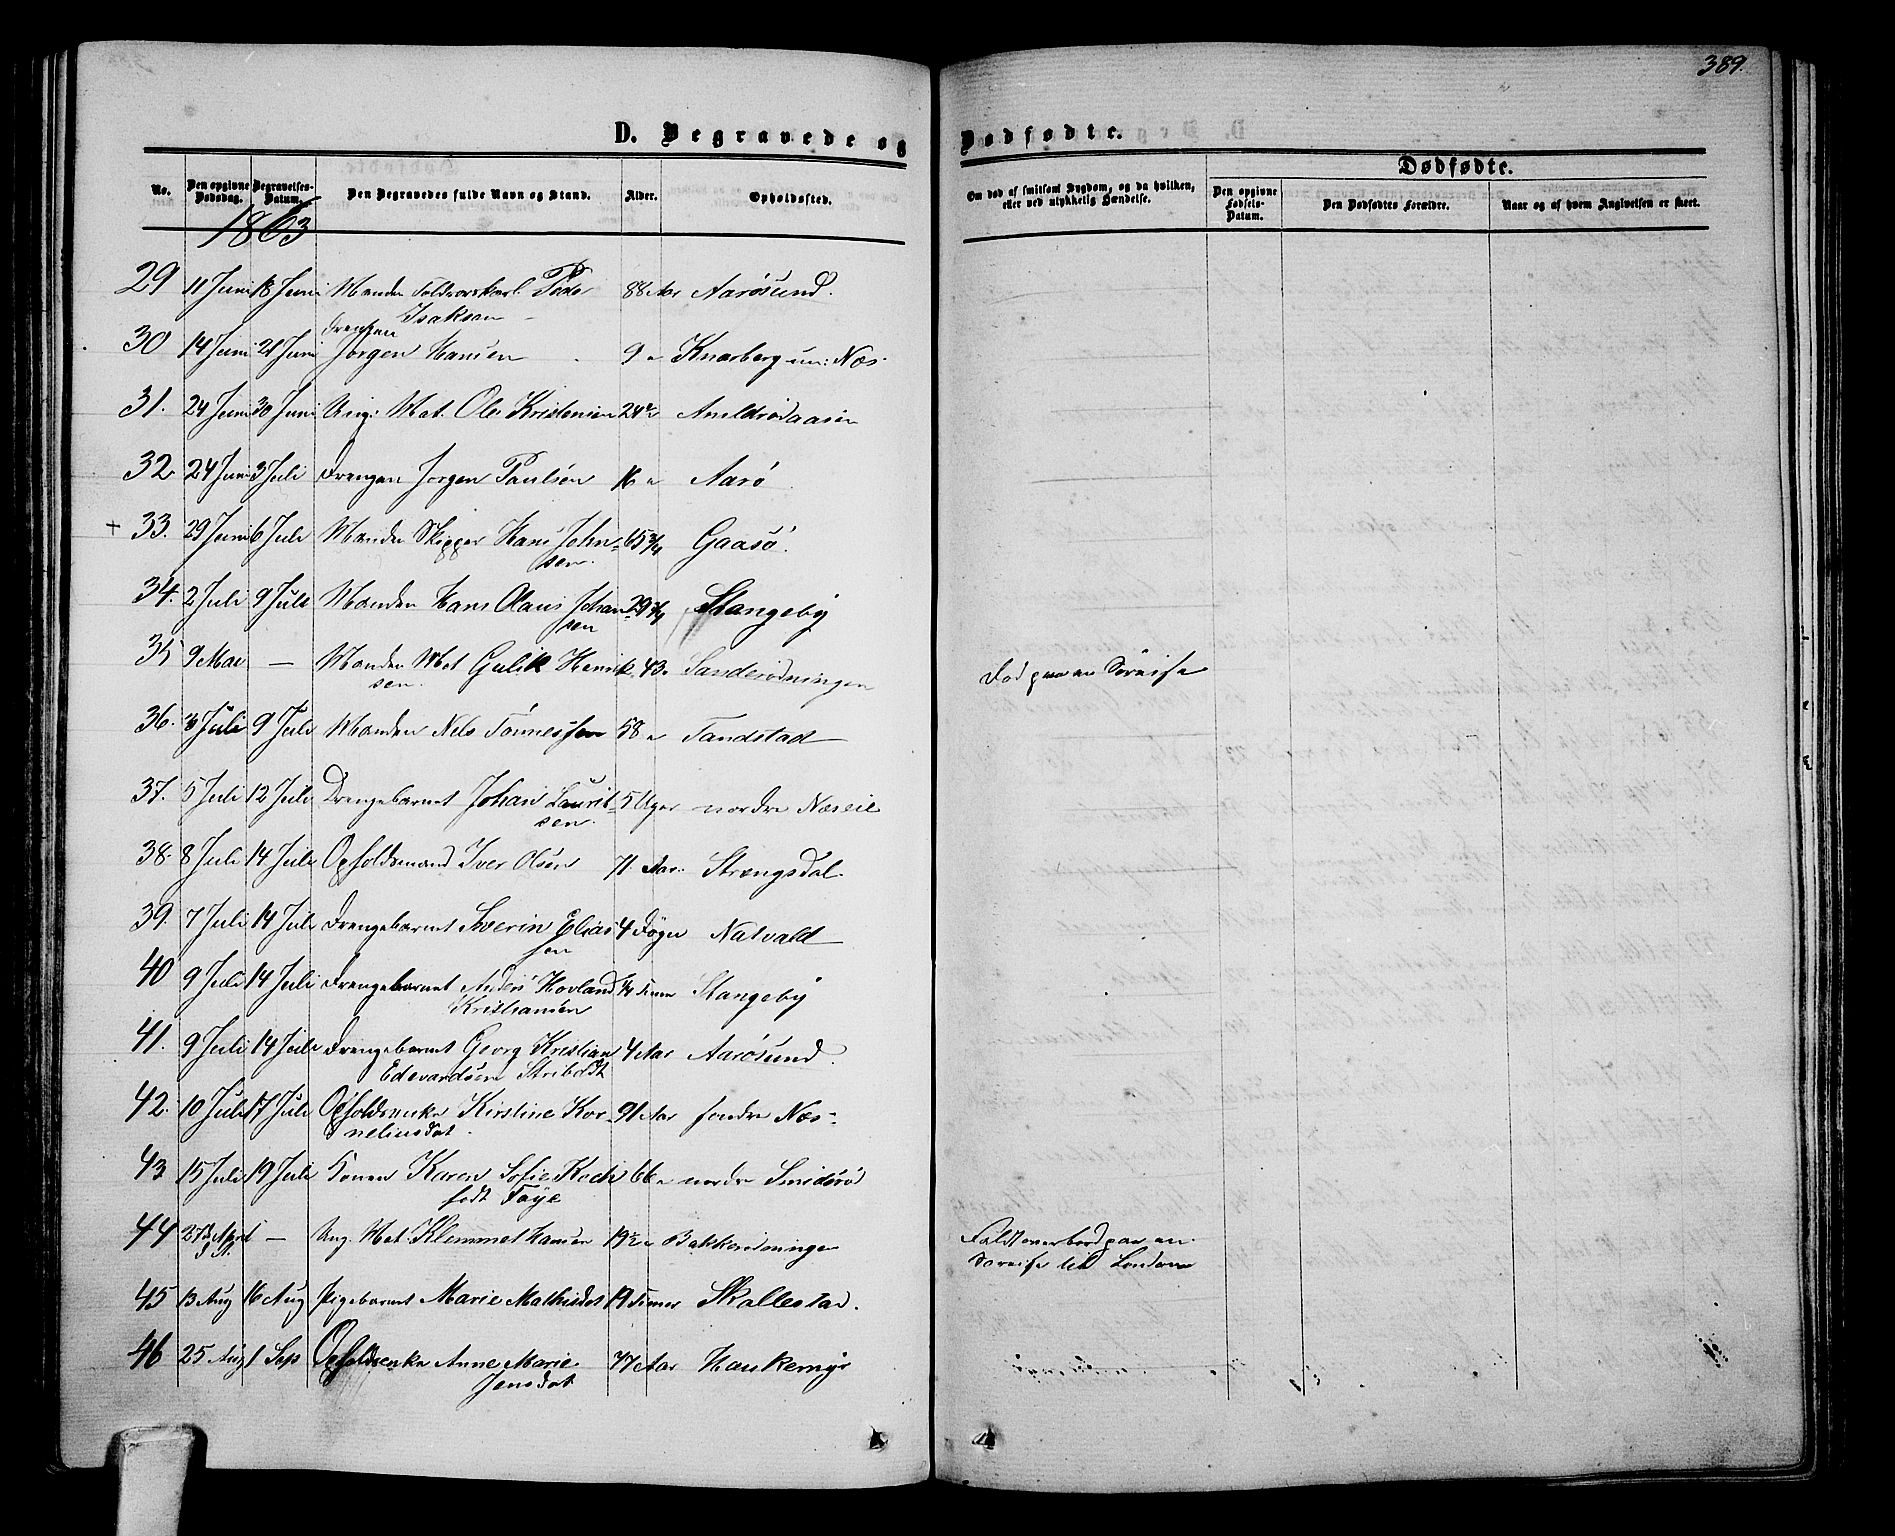 389.
D. Begravede og Dødfødte.
No. Den opgivne Dødsdag. Begravelses-Datum. Den Begravedes fulde Navn og Stand. Alder. Opholdssted. Om død af smitsom Sygdom, og da hvilken, eller ved ulykkelig Hændelse. Dødfødte. Den opgivne Fødsels-Datum. Den Dødfødtes Forældre. Naar og af hvem Angivelsen er skeet.
1863
29 11 Juni 18 Juni Manden Toldvorskarl Peder 88 Aar Aarøsund.
Isaksen
Drengen
30 14 Juni 21 Juni Jørgen Hansen 9 " Knarberg un: Næs
31. 24 Juni 30 Juni Ung: Mat. Ole Kristensen 24½
32. 24 Juni 3 Juli Drengen Jørgen Paulsen 16 " Aarø
+ 33. 29 Juni 6 Juli Manden Skipper Hans John- 65 3/4 Gaasø.
sen.
34. 2 Juli 9 Juli Manden Hans Olaus Johan- 29 3/4 Stangeby
sen
35 9 Mai — Manden Mat Gulik Henrik- 43 " Sanderødningen Død paa en Søreise
sen.
36. 3 Juli 9 Juli Manden Nels Tønnessen 58 " Tandstad
37. 5 Juli 12 Juli Drengebarnet Johan Laurit- 5 Uger nordre Næseie
sen.
38. 8 Juli 14 Juli Opholdsmand Iver Olsen 71 Aar. Strengsdal.
39. 7 Juli 14 Juli Drengebarnet Severin Elias- 4 Døgn Natvald
sen
40 9 Juli 14 Juli Drengebarnet Anders Hovland ¼ Time Stangeby
Kristiansen
41. 9 Juli 14 Juli Drengebarnet Georg Kristian 4 Aar Aarøsund.
Edevardsen Striboldt
42. 10 Juli 17 Juli Opholdsenke Kirstine Kor- 91 Aar søndre Næs-
neliusdat.
43 15 Juli 19 Juli Konen Karen Sofie Koch 66 " nordre Smidsrød
født Faye
44 27de April — Ung. Mat. Klemmet Hansen 19½ " Bakkerødningen Faldt overbord paa en
Søreise til London
45 13 Aug 16 Aug Pigebarnet Marie Mathisdat 19 Timer Skallestad.
46 25 Aug 1 Sep Opholdsenke Anne Marie 77 Aar Haukemyr
Jensdat